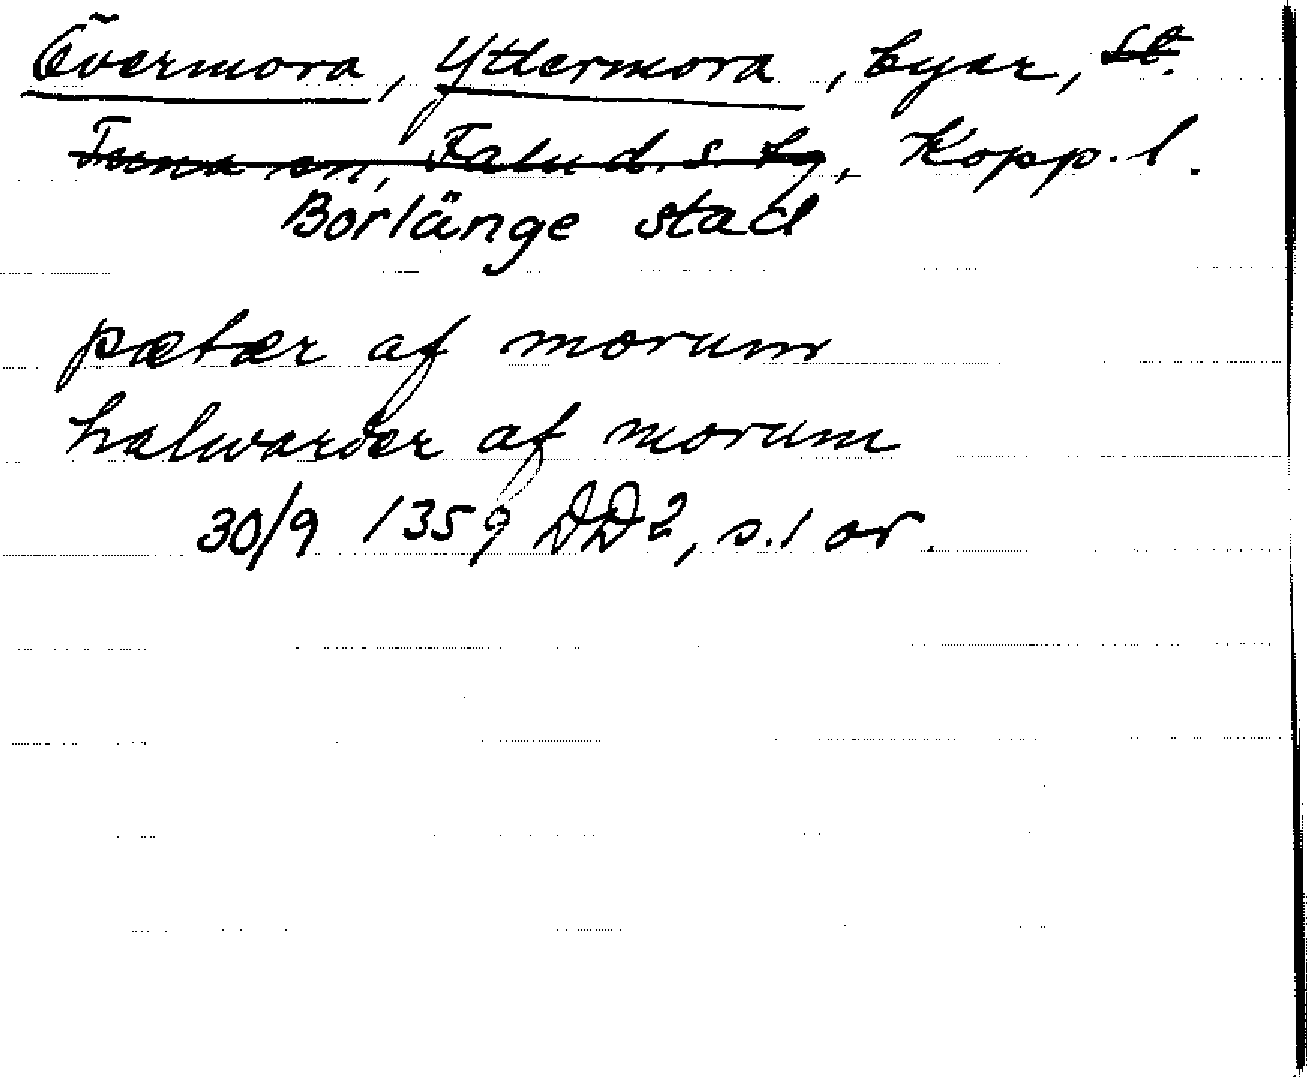 Övermora, Yttermora, byar, St.
Tuna sn, Falu d. s. tg, Kopp. l.
Borlänge stad
pætær af morum
halwarder af morum
30/9 1359 DD 2, s. 1 or.